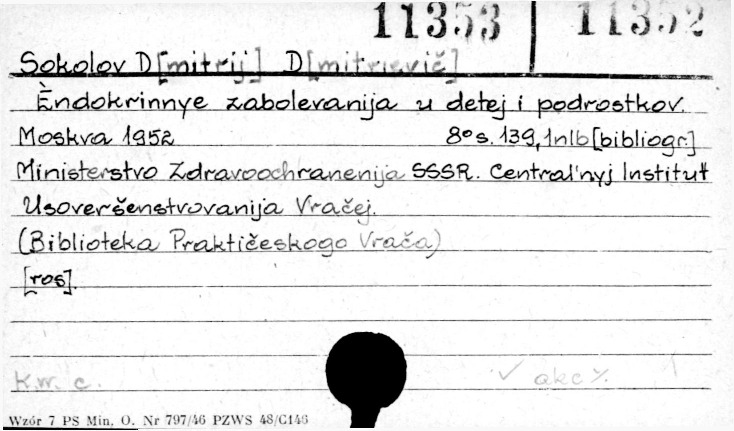 11353 11352
Sokolov D[mitrij] D[mitrievič]
Èndokrinnye zabolevanija u detej i podrostkov.
Moskva 1952 8° s. 139, 1nlb [bibliogr.]
Ministerstvo Zdravoochranenija SSSR. Central'nyj Institut
Usoveršenstvovanija Vračej.
(Biblioteka Praktičeskogo Vrača)
[ros].
K.w. c.
Wzór 7 PS Min. O. Nr 797/46 PZWS 48/C146